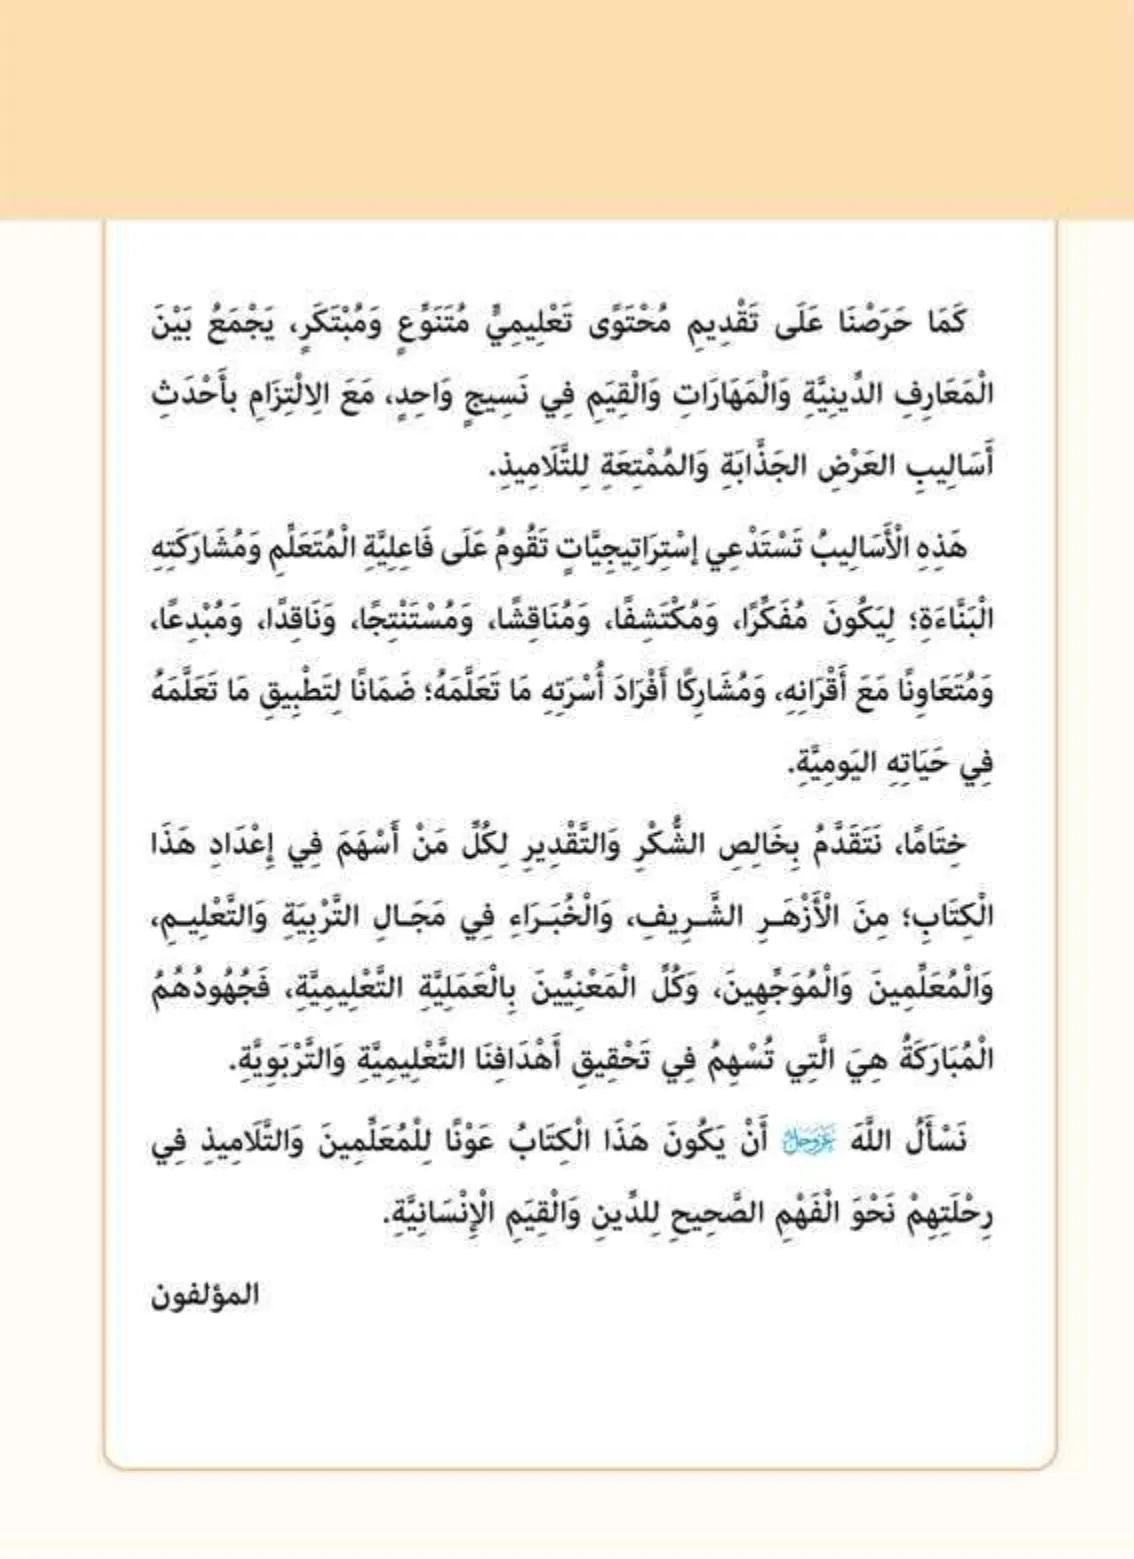 كَمَا حَرَصْنَا عَلَى تَقْدِيمِ مُحْتَوًى تَعْلِيمِيٍّ مُتَنَوِّعٍ وَمُبْتَكَرٍ، يَجْمَعُ بَيْنَ
الْمَعَارِفِ الدِّينِيَّةِ وَالْمَهَارَاتِ وَالْقِيَمِ فِي نَسِيجٍ وَاحِدٍ، مَعَ الِالْتِزَامِ بأَحْدَثِ
أَسَالِيبِ العَرْضِ الجَذَّابَةِ وَالمُمْتِعَةِ لِلتَّلَامِيذِ.
هَذِهِ الْأَسَالِيبُ تَسْتَدْعِي إسْتِرَاتِيجِيَّاتٍ تَقُومُ عَلَى فَاعِلِيَّةِ الْمُتَعَلِّمِ وَمُشَارَكَتِهِ
الْبَنَّاءَةِ؛ لِيَكُونَ مُفَكِّرًا، وَمُكْتَشِفًا، وَمُنَاقِشًا، وَمُسْتَنْتِجًا، وَنَاقِدًا، وَمُبْدِعًا،
وَمُتَعَاوِنًا مَعَ أَقْرَانِهِ، وَمُشَارِكًا أَفْرَادَ أُسْرَتِهِ مَا تَعَلَّمَهُ؛ ضَمَانًا لِتَطْبِيقِ مَا تَعَلَّمَهُ
فِي حَيَاتِهِ اليَومِيَّةِ.
خِتَامًا، نَتَقَدَّمُ بِخَالِصِ الشُّكْرِ وَالتَّقْدِيرِ لِكُلِّ مَنْ أَسْهَمَ فِي إِعْدَادِ هَذَا
الْكِتَابِ؛ مِنَ الْأَزْهَـرِ الشَّـرِيفِ، وَالْخُبَـرَاءِ فِي مَجَـالِ التَّرْبِيَةِ وَالتَّعْلِيـمِ،
وَالْمُعَلِّمِينَ وَالْمُوَجِّهِينَ، وَكُلِّ الْمَعْنِيِّينَ بِالْعَمَلِيَّةِ التَّعْلِيمِيَّةِ، فَجُهُودُهُمُ
الْمُبَارَكَةُ هِيَ الَّتِي تُسْهِمُ فِي تَحْقِيقِ أَهْدَافِنَا التَّعْلِيمِيَّةِ وَالتَّرْبَوِيَّةِ.
نَسْأَلُ اللَّهَ عَزَّ وَجَلَّ أَنْ يَكُونَ هَذَا الْكِتَابُ عَوْنًا لِلْمُعَلِّمِينَ وَالتَّلَامِيذِ فِي
رِحْلَتِهِمْ نَحْوَ الْفَهْمِ الصَّحِيحِ لِلدِّينِ وَالْقِيَمِ الْإِنْسَانِيَّةِ.
المؤلفون